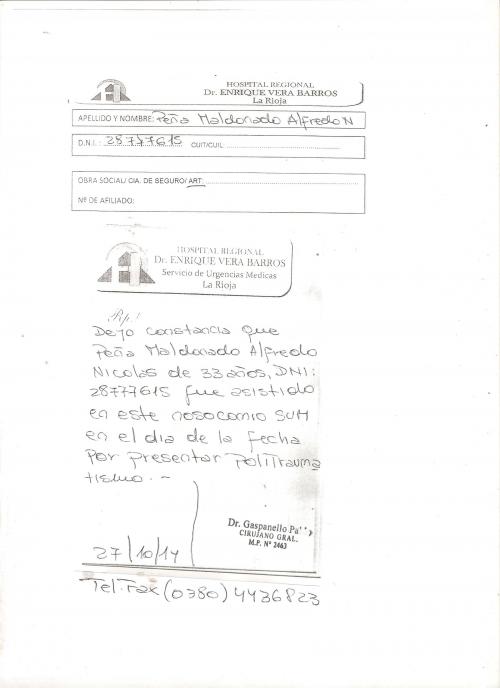 HOSPITAL REGIONAL
Dr. ENRIQUE VERA BARROS
La Rioja
APELLIDO Y NOMBRE: Peña Maldonado Alfredo N
D.N.I.: 28777615 CUIT/CUIL:
OBRA SOCIAL/ CIA. DE SEGURO/ ART:
Nº DE AFILIADO:
HOSPITAL REGIONAL
Dr. ENRIQUE VERA BARROS
Servicio de Urgencias Medicas
La Rioja
Rp!
Dejo constancia que
Peña Maldonado Alfredo
Nicolás de 33 años, DNI:
28777615 fue asistido
en este nosocomio SUM
en el dia de la fecha
por presentar Politrauma
tismo. -
Dr. Gaspanello
CIRUJANO GRAL.
M.P. Nº 2463
27/10/14
Tel. Fax (0380) 4436823